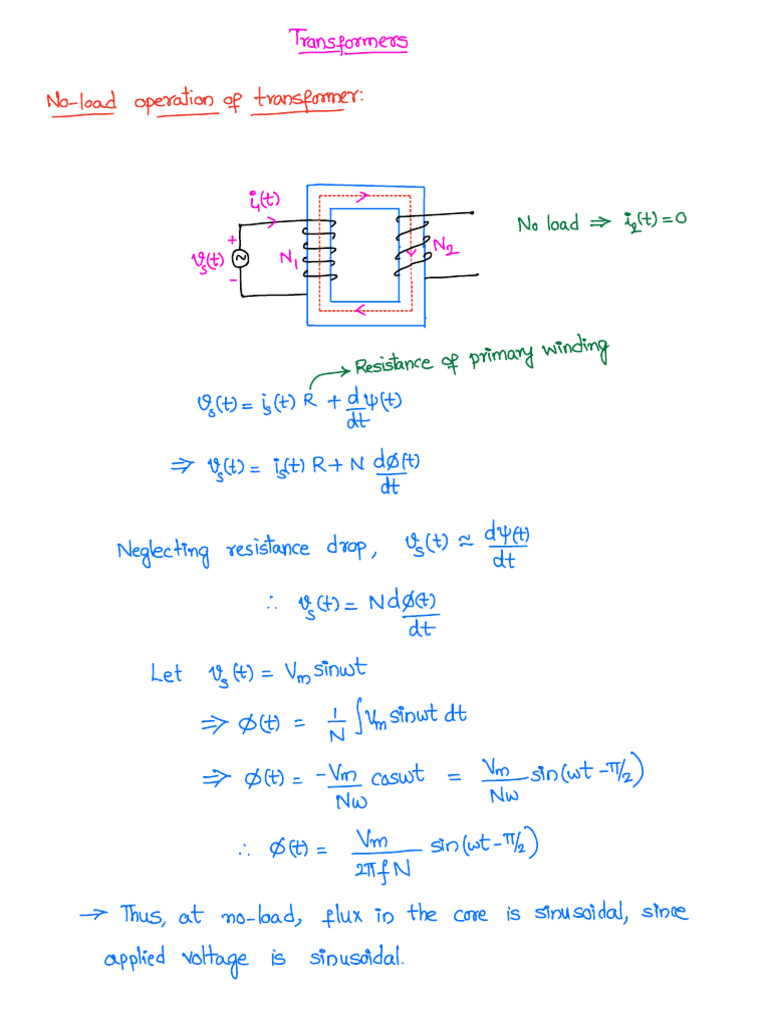 Transformers
No-load operation of transformer:
i₁(t)
No load ⇒ i₂(t)=0
+
vₛ(t)
N₁
N₂
-
→ Resistance of primary winding
vₛ(t) = iₛ(t) R + dψ(t)/dt
⇒ vₛ(t) = iₛ(t) R + N dϕ(t)/dt
Neglecting resistance drop, vₛ(t) ≈ dψ(t)/dt
∴ vₛ(t) = N dϕ(t)/dt
Let vₛ(t) = Vₘ sinωt
⇒ ϕ(t) = 1/N ∫Vₘ sinωt dt
⇒ ϕ(t) = -Vₘ/Nω cosωt = Vₘ/Nω sin(ωt-π/2)
∴ ϕ(t) = Vₘ/2πfN sin(ωt-π/2)
→ Thus, at no-load, flux in the core is sinusoidal, since
applied voltage is sinusoidal.